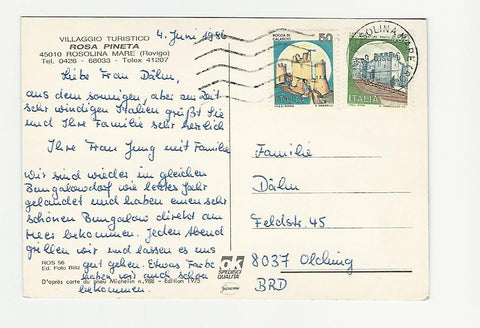 VILLAGGIO TURISTICO
ROSA PINETA
45010 ROSOLINA MARE (Rovigo)
Tel. 0426 - 68033 - Telex 41207
4. Juni 1986
Liebe Frau Dähn,
aus dem sonnigen, aber zur Zeit
sehr windigen Italien grüßt Sie
und Ihre Familie sehr herzlich
Ihre Frau Jung mit Familie
Wir sind wieder im gleichen
Bungalowdorf wie letztes Jahr
gelandet und haben einen sehr
schönen Bungalow direkt am
Meer bekommen. Jeden Abend
grillen wir und lassen es uns
gut gehen. Etwas Farbe
haben wir auch schon
bekommen.
ROS 56
Ed. Foto Blitz
D'après carte du pneu Michelin n. 988 - Edition 1975
OK
SPEDISCI
QUALITÀ
ROCCA DI
CALASCIO
50
ITALIA
ITALIA
ROSOLINA MARE
Familie
Dähn
Feldstr. 45
8037 Olching
BRD